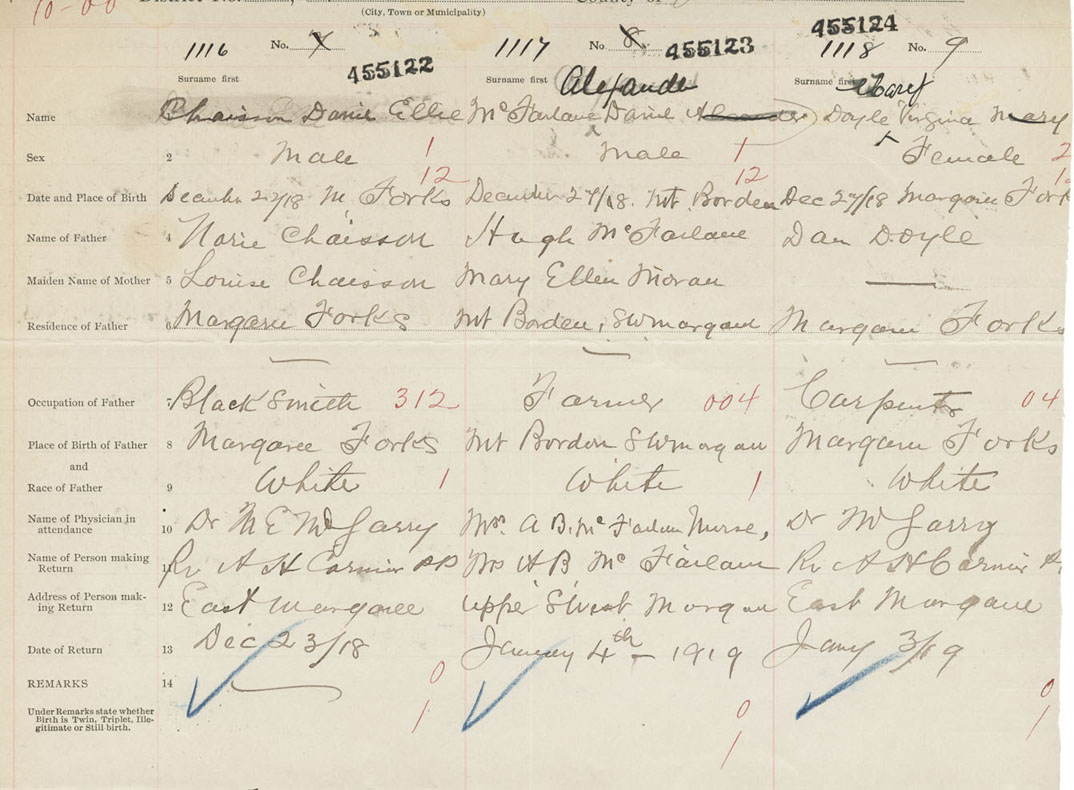 10-00 District No. County of
(City, Town or Municipality)
1116 No. 7 455122 1117 No 8 455123 1118 No. 9 455124
Surname first Surname first Surname first
Alexander Mary
Name Chaisson Daniel Ellie McFarlane Daniel Doyle Virginia Mary
Sex 2 Male 1 Male 1 Female 2
12 12
Date and Place of Birth December 27/18 M. Forks December 27/18. Mt Borden Dec 27/18 Margaree Forks
Name of Father 4 Chaisson Hugh McFarlane Dan Doyle
Maiden Name of Mother 5 Louise Chaisson Mary Ellen Moran
Residence of Father 6 Margaree Forks Mt Borden, SW Margaree Margaree Forks
Occupation of Father 7 Black Smith 312 Farmer 004 Carpenter 04
Place of Birth of Father 8 Margaree Forks Mt Borden SW Margaree Margaree Forks
and
Race of Father 9 White 1 White 1 White
Name of Physician in
attendance 10 Dr M E McGarry Mrs. A B. McFarlane Nurse, Dr McGarry
Name of Person making
Return 11 Rv A H Cormier PP Mrs A B McFarlane Rv A H Cormier P.
Address of Person mak-
ing Return 12 East Margaree Upper S West Margaree East Margaree
Date of Return 13 Dec 23/18 January 4th - 1919 Jany 3/19
REMARKS 14 0 0
Under Remarks state whether
Birth is Twin, Triplet, Ille-
gitimate or Still-birth. 1 0 1
1